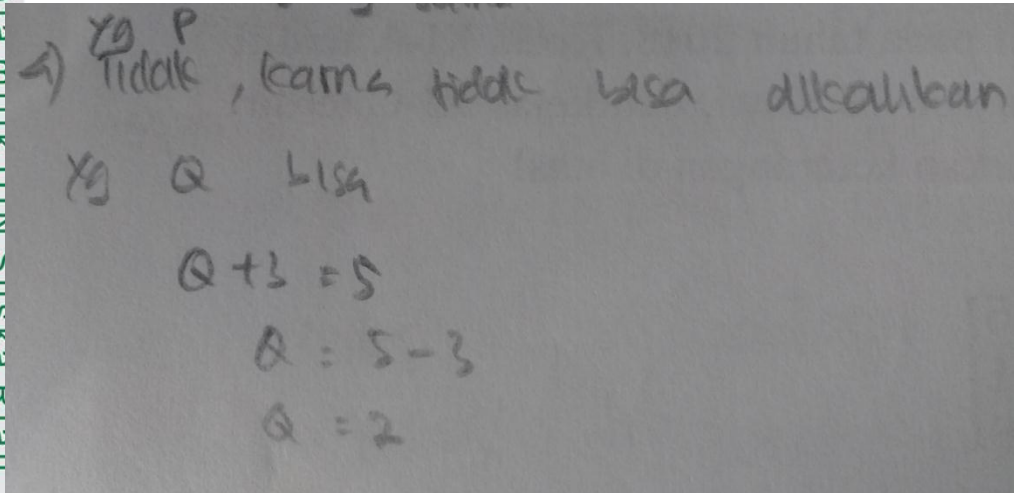 Yg P
4) Tidak, karna tidak bisa dikalikan
Yg Q bisa
Q + 3 = 5
Q = 5 - 3
Q = 2